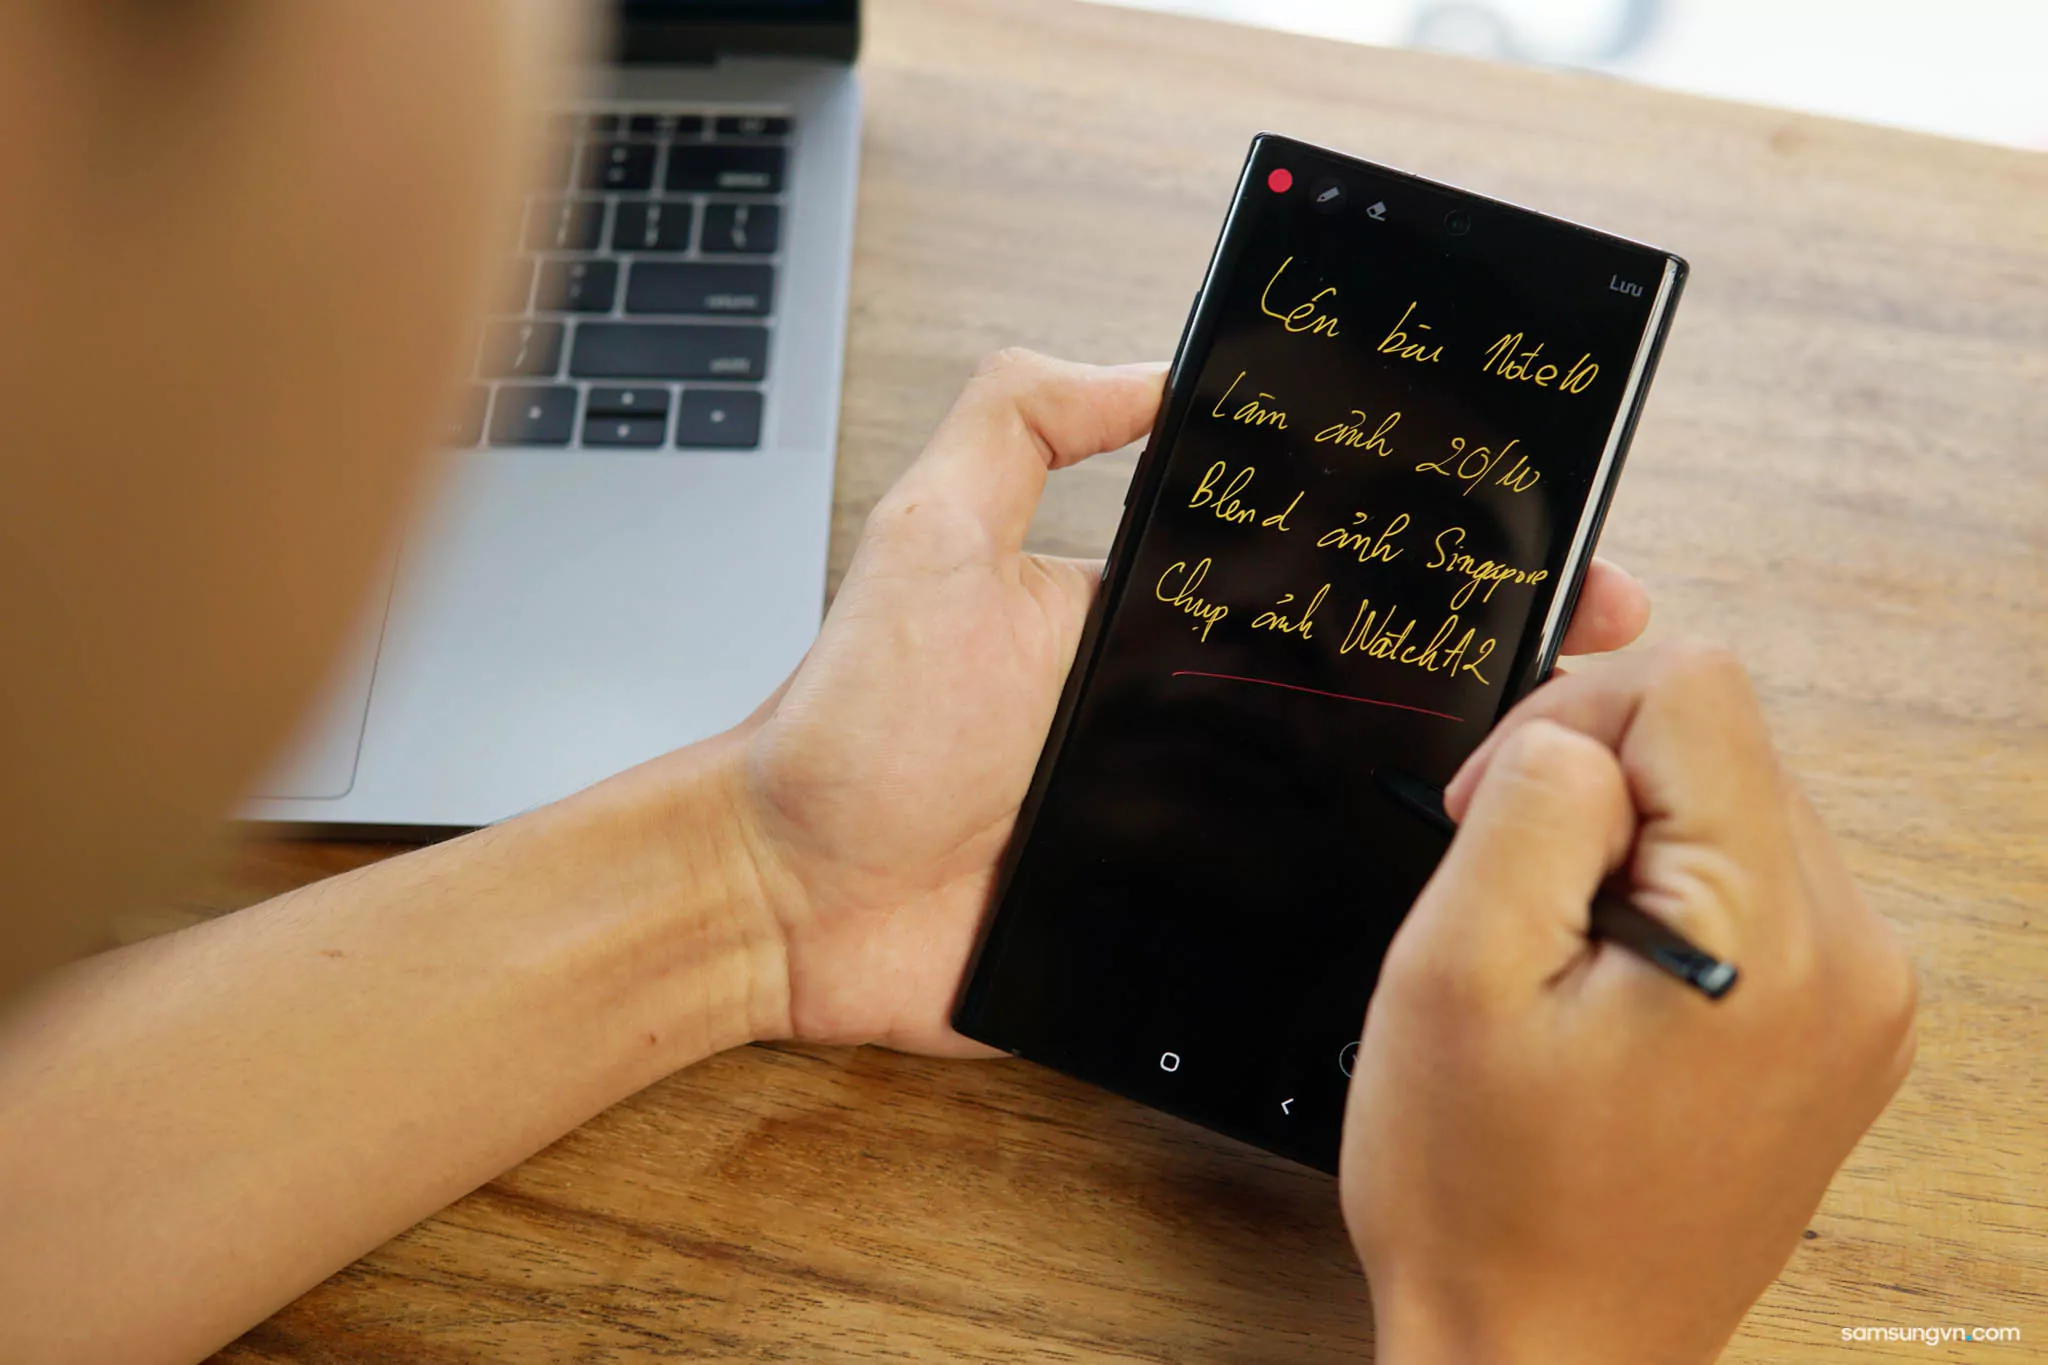 Lưu
Lên bài Note10
Làm ảnh 20/10
Blend ảnh Singapore
Chụp ảnh WatchA2
samsungvn.com